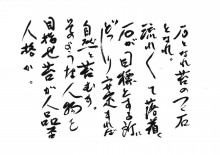 石となれ苔のつく石
となれ。
流れ流れて落着く
石が目標とする所に
どっしり安定すれば
自然と苔むす。
そのような人物を
目指せ苔が人品苔
人格か。